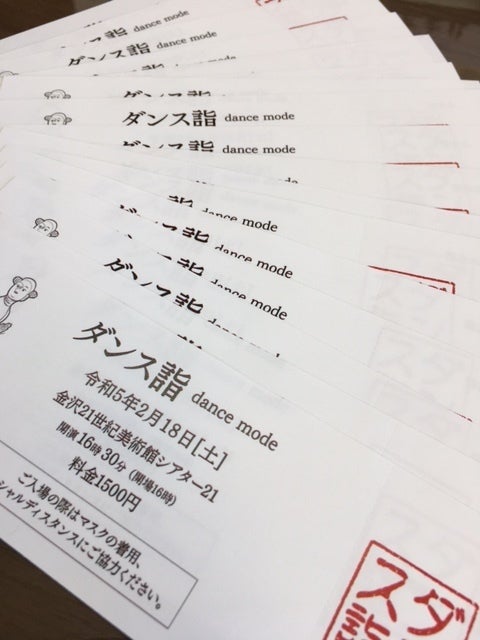 ダンス詣 dance mode
ダンス詣 dance mode
dance mode
ダンス詣 dance mode
ダンス詣 dance mode
詣 dance mode
ダンス詣 dance mode
dance mode
ダンス詣 dance mode
ダンス詣 dance mode
令和5年2月18日[土]
金沢21世紀美術館シアター21
開演16時30分（開場16時）
料金1500円
ご入場の際はマスクの着用、
シャルディスタンスにご協力ください。
ダ
ス詣